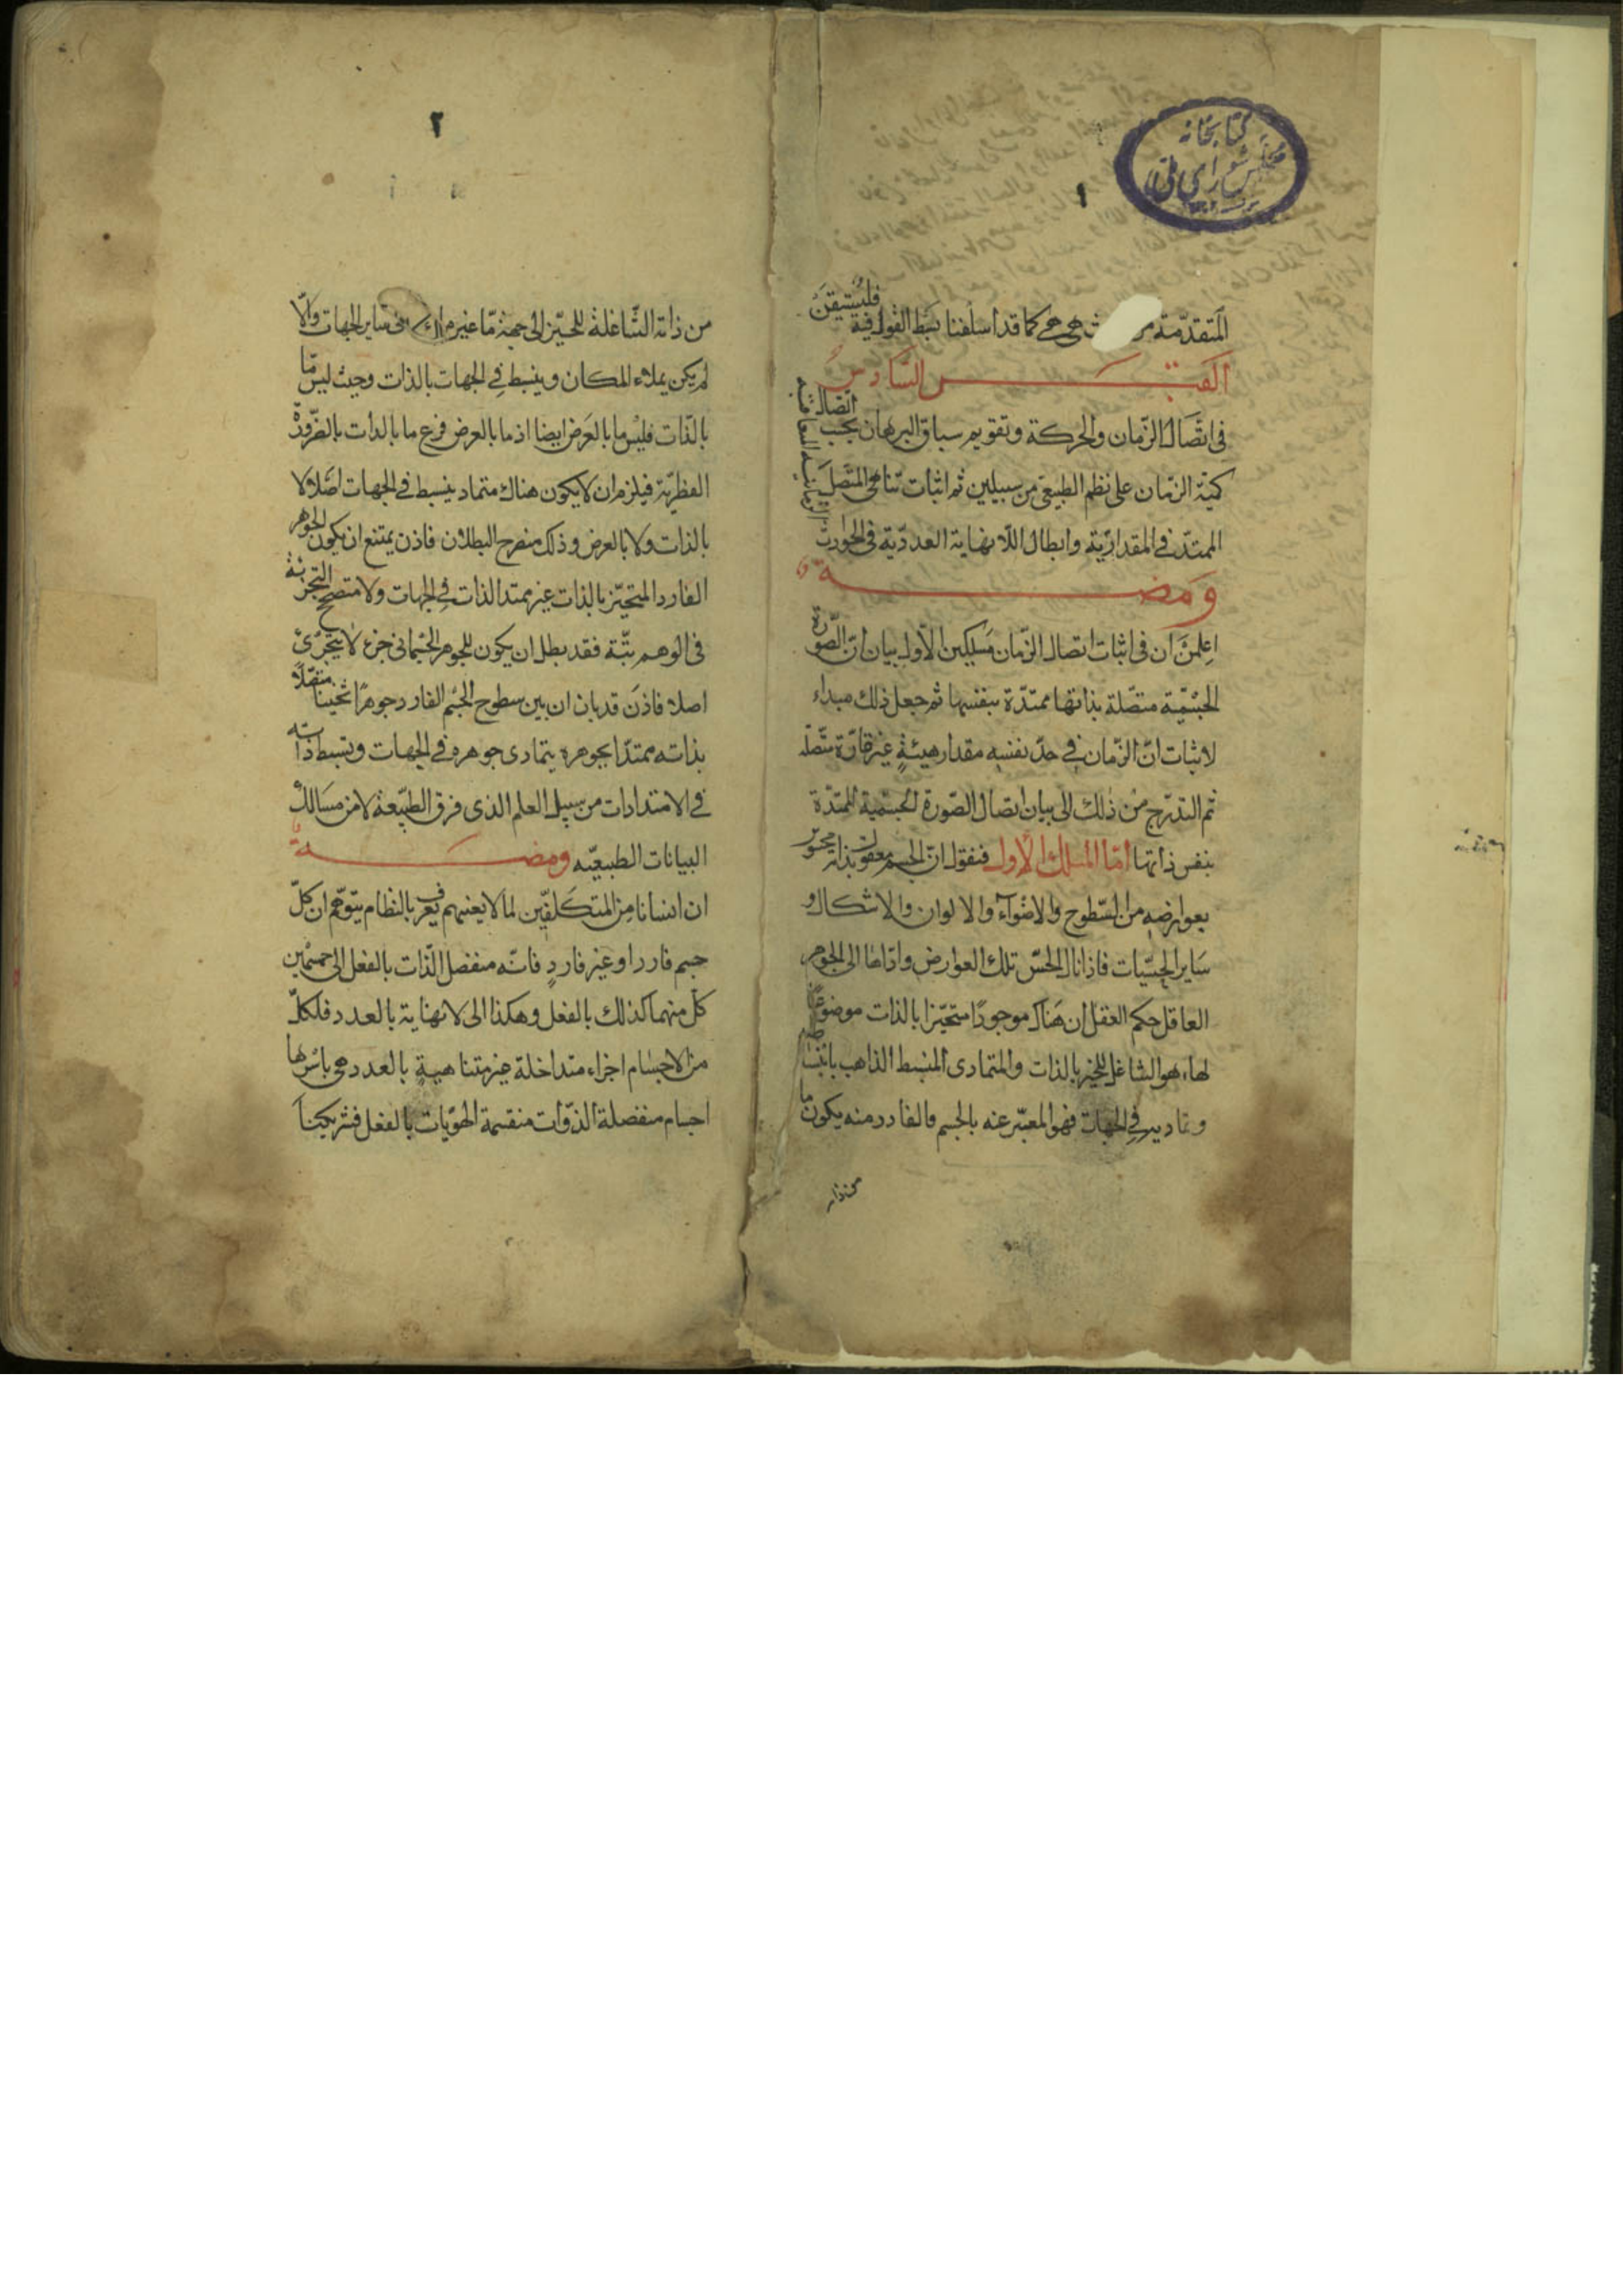 كتابخانه
مجلس شورای ملی
١
المتقدمة هي هي كما قد اسلفنا بسط القول فيه فليستيقن
القبس السادس
في اتصال الزمان والحركة وتقويم سياق البرهان بحسب اتصال
كمية الزمان على نظم الطبيعي من سبيلين ثم اثبات تناهي المتصل
الممتد في المقدارية وابطال اللانهاية العددية في الحوادث
ومضة
اعلمن ان في اثبات اتصال الزمان مسلكين الاول بيان ان الصورة
الجسمية متصلة بذاتها ممتدة بنفسها ثم جعل ذلك مبداء
لاثبات ان الزمان في حد نفسه مقدار هيئة غير قارة متصله
ثم التدرج من ذلك الى بيان اتصال الصورة الجسمية الممتدة
بنفس ذاتها اما المسلك الاول فنقول ان الجسم معقول بذاته محسوس
بعوارضه من السطوح والاضواء والالوان والاشكال و
ساير الحسيات فاذا نال الحس تلك العوارض واداها الى الجوهر
العاقل حكم العقل ان هناك موجودا متحيزا بالذات موضوعا
لها هو الشاغل للحيز بالذات والمتمادى المنبسط الذاهب بانبساطه
وتماديه في الجهات فهو المعبر عنه بالجسم فالفارد منه يكون ما
من ذاته
٢
من ذاته الشاغلة للحيز الى جهة ما غير ما ساير الجهات والا
لم يكن يملاء المكان وينبسط في الجهات بالذات وحيث ليس ما
بالذات فليس ما بالعرض ايضا اذ ما بالعرض فرع ما بالذات بالضرورة
الفطرية فيلزم ان لا يكون هناك متماد ينبسط في الجهات اصلا لا
بالذات ولا بالعرض وذلك منصرح البطلان فاذن يمتنع ان يكون الجوهر
الفارد المتحيز بالذات غير ممتد الذات في الجهات ولا متصحح التجزئة
في الوهم بتة فقد بطل ان يكون للجوهر الجسمانى جزء لا يتجزى
اصلا فاذن قد بان ان بين سطوح الجسم الفارد جوهرا ثخينا متصلا
بذاته ممتدا بجوهره يتمادى جوهره في الجهات وتنبسط ذاته
في الامتدادات من سبيل العلم الذى فوق الطبيعة لا من مسالك
البيانات الطبيعيه ومضة
ان انسانا من المتكلفين لما لا يعنيهم يعرف بالنظام يتوهم ان كل
جسم فاردا او غير فارد فانه منفصل الذات بالفعل الى جسمين
كل منهما كذلك بالفعل وهكذا الى لا نهاية بالعدد فلكل
من الاجسام اجزاء متداخلة غير متناهية بالعدد هي باسرها
اجسام منفصلة الذوات منقسمة الهويات بالفعل